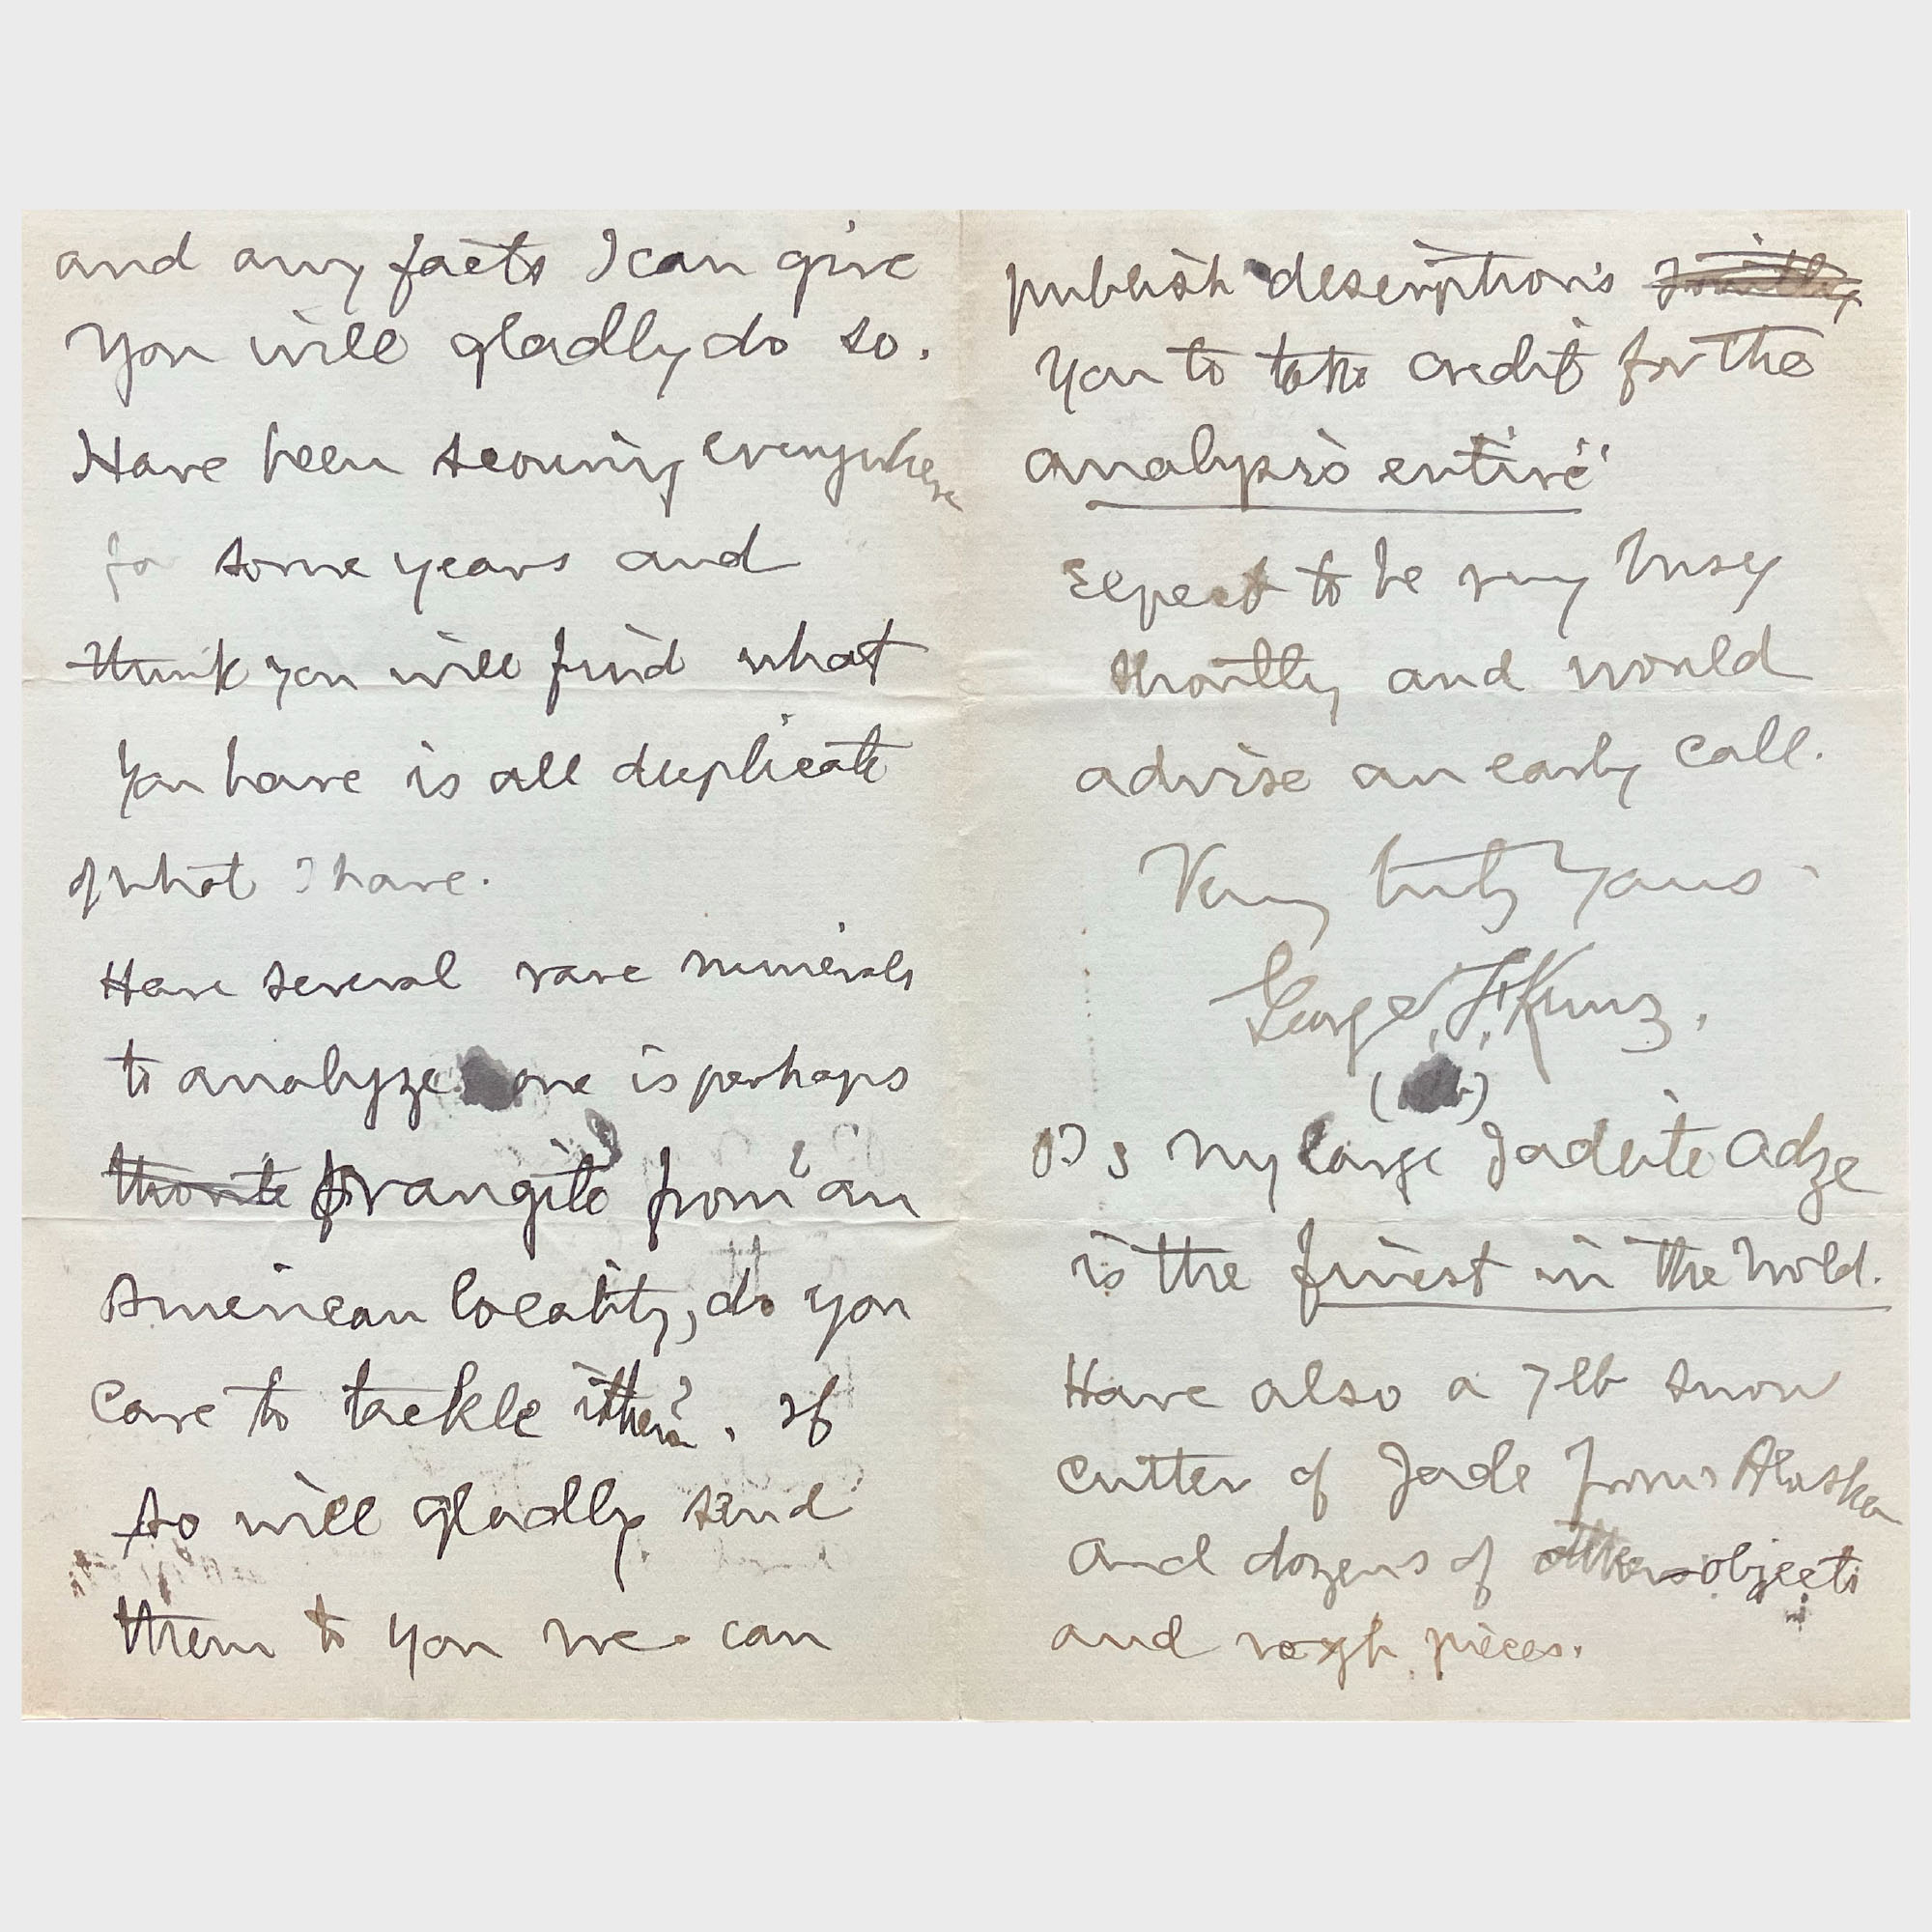 and any facts I can give
you will gladly do so.
Have been scouring everywhere
for some years and
think you will find what
you have is all duplicate
of what I have.
Have several rare minerals
to analyze one is perhaps
thorite orangite from an
American locality, do you
care to tackle them? If
so will gladly send
them to you we can
publish descriptions jointly
you to take credit for the
analysis entire
Expect to be very busy
shortly and would
advise an early call.
Very truly Yours
George F. Kunz.
PS My large Jadeite adze
is the finest in the world.
Have also a 7 lb snow
cutter of Jade from Alaska
and dozens of other objects
and rough pieces.